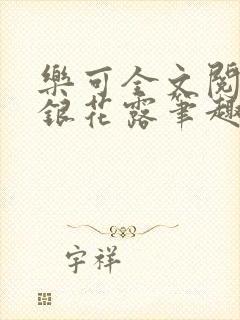 樂可全文閱
銀花露筆趣
宇祥